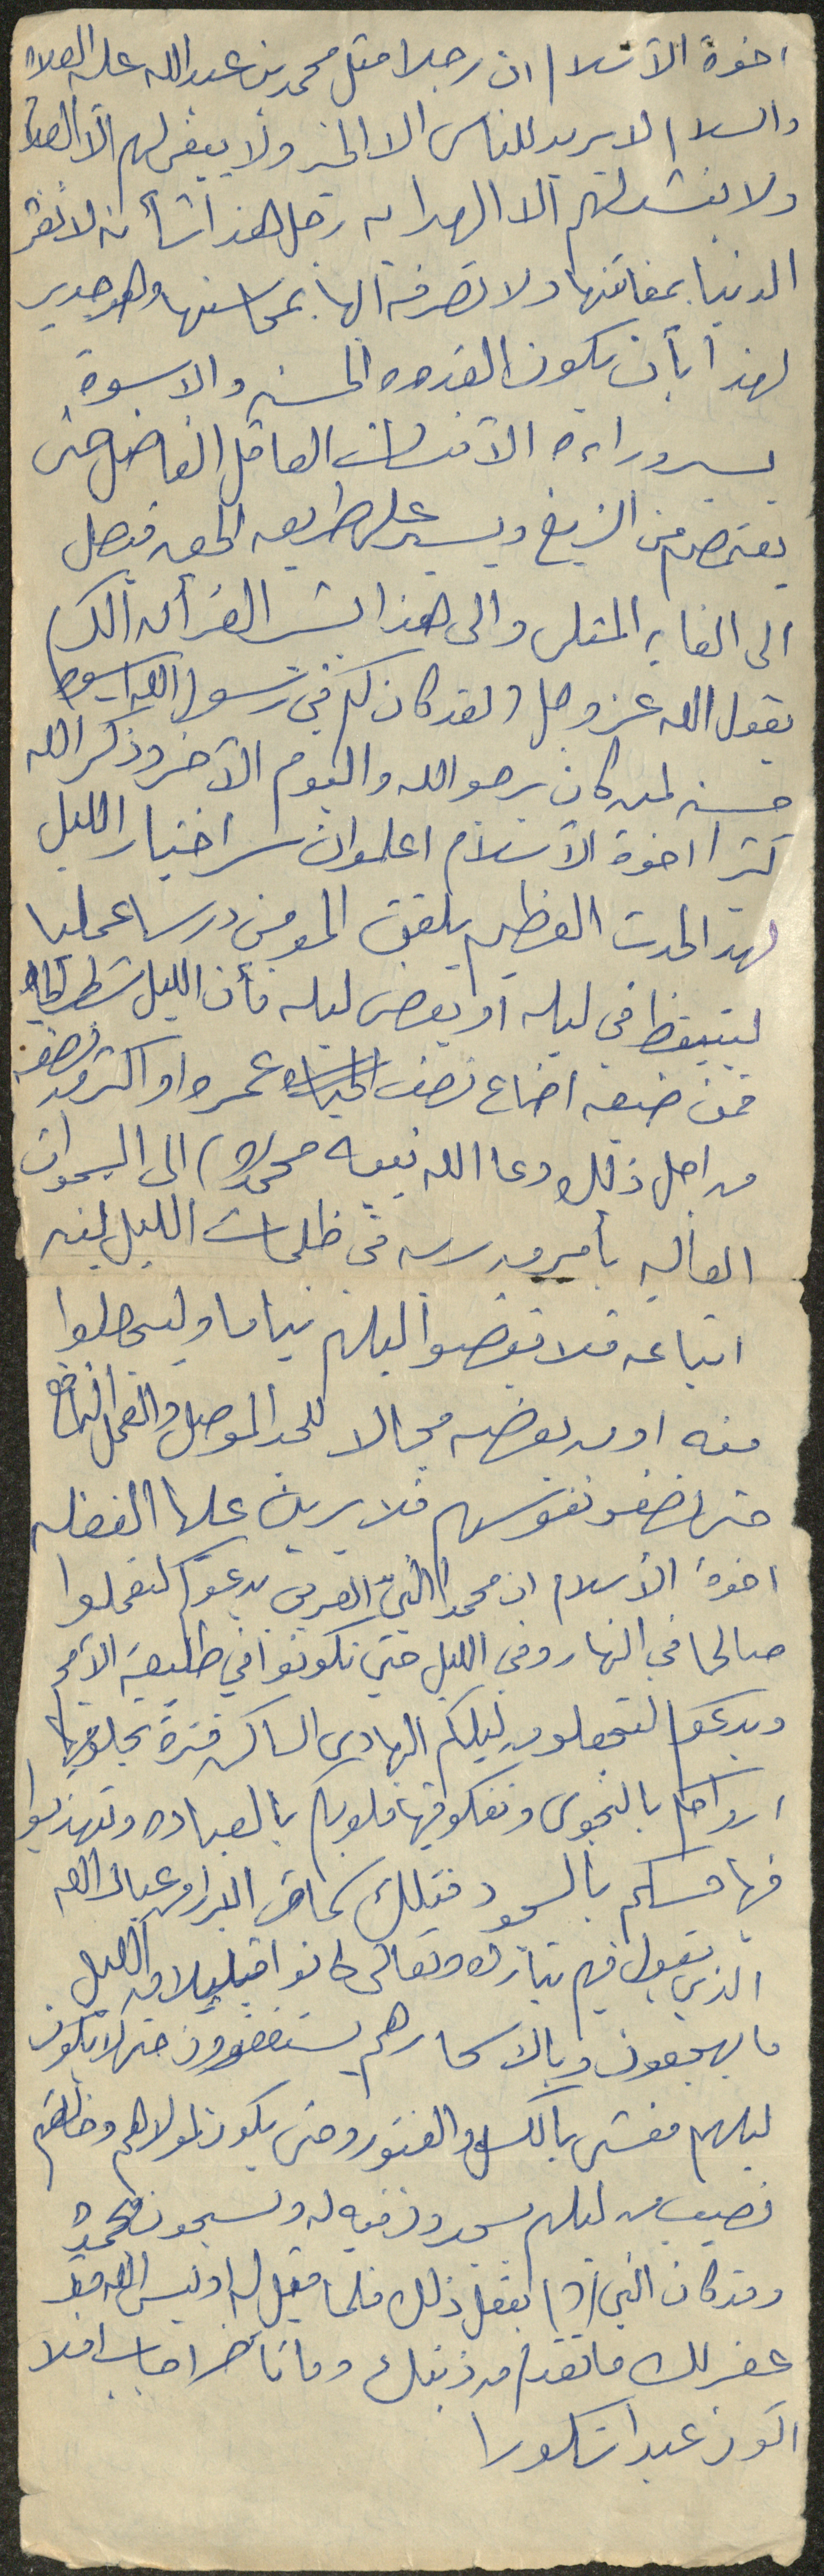 اخوة الاسلام ان رجلا مثل محمد بن عبد الله عليه الصلاة
والسلام لا يريد للناس الا الخير ولا يبغي لهم الا
ولا ينشد لهم الا الهدايه رجل هذا شأنه لا تغره
الدنيا بمفاتنها ولا تصرفه الها بمحاسنها وهو جدير
لهذا بأن يكون القدوه الحسنه والاسوة
يسير وراءه الانسان العاقل الفاضل حتى
يعتصم من الزيغ ويسير على طريقه الحق فيصل
الى الغايه المثلى والى هذا يشير القرأن الكريم
يقول الله عز وجل (لقد كان لكم في رسول الله اسوة
حسنه لمن كان يرجو الله واليوم الآخر وذكر الله
كثيرا اخوة الاسلام اعلموا ان سر اختيار الليل
لهذا الحدث العظيم يلقن المؤمن درسا عمليا
ليتيقظ في ليله او بعض ليله فأن الليل شطر الحياة
فمن ضيعه اضاع نصف الحياة عمره او اكثر من نصفه
من اجل ذلك دعا الله نبيه محمد (ص) الى السموات
العاليه بأمر من ربه في ظلمات الليل لينبه
اتباعه فلا يقضوا ليلهم نياما وليجعلوا
منه او من بعضه مجالا للجد الموصل والعمل النافع
حتى تصفو نفوسهم فلا يرين عليها الغفله
اخوة الاسلام ان محمدا النبي العربي يدعوكم لتعملوا
صالحا في النهار وفي الليل حتى تكونوا في طليعة الأمم
ويدعوكم لتجعلو من ليلكم الهادي الساكن فترة تجلو فيها
ارواحكم بالنجوى وتفكو فيها قلوبكم بالعباده وتهذبوا
فيها حسكم بالسجود فتيلك كانت الابرار من عباد الله
الذي يقول فيهم تبارك وتعالى كانوا قليلا من الليل
ما يهجعون وبالاسحار هم يستغفرون حتى لا يكون
ليلهم مغشى بالكسل والفتور وحتى يكون لمولاهم وخالقهم
نصيب من ليلهم يسجدون فيه له ويسبحون بحمده
وقد كان النبي (ص) يفعل ذلك فلما قيل له اوليس الله قد
غفر لك ما تقدم من ذنبك وما تأخر اجاب افلا
اكون عبدا شكورا